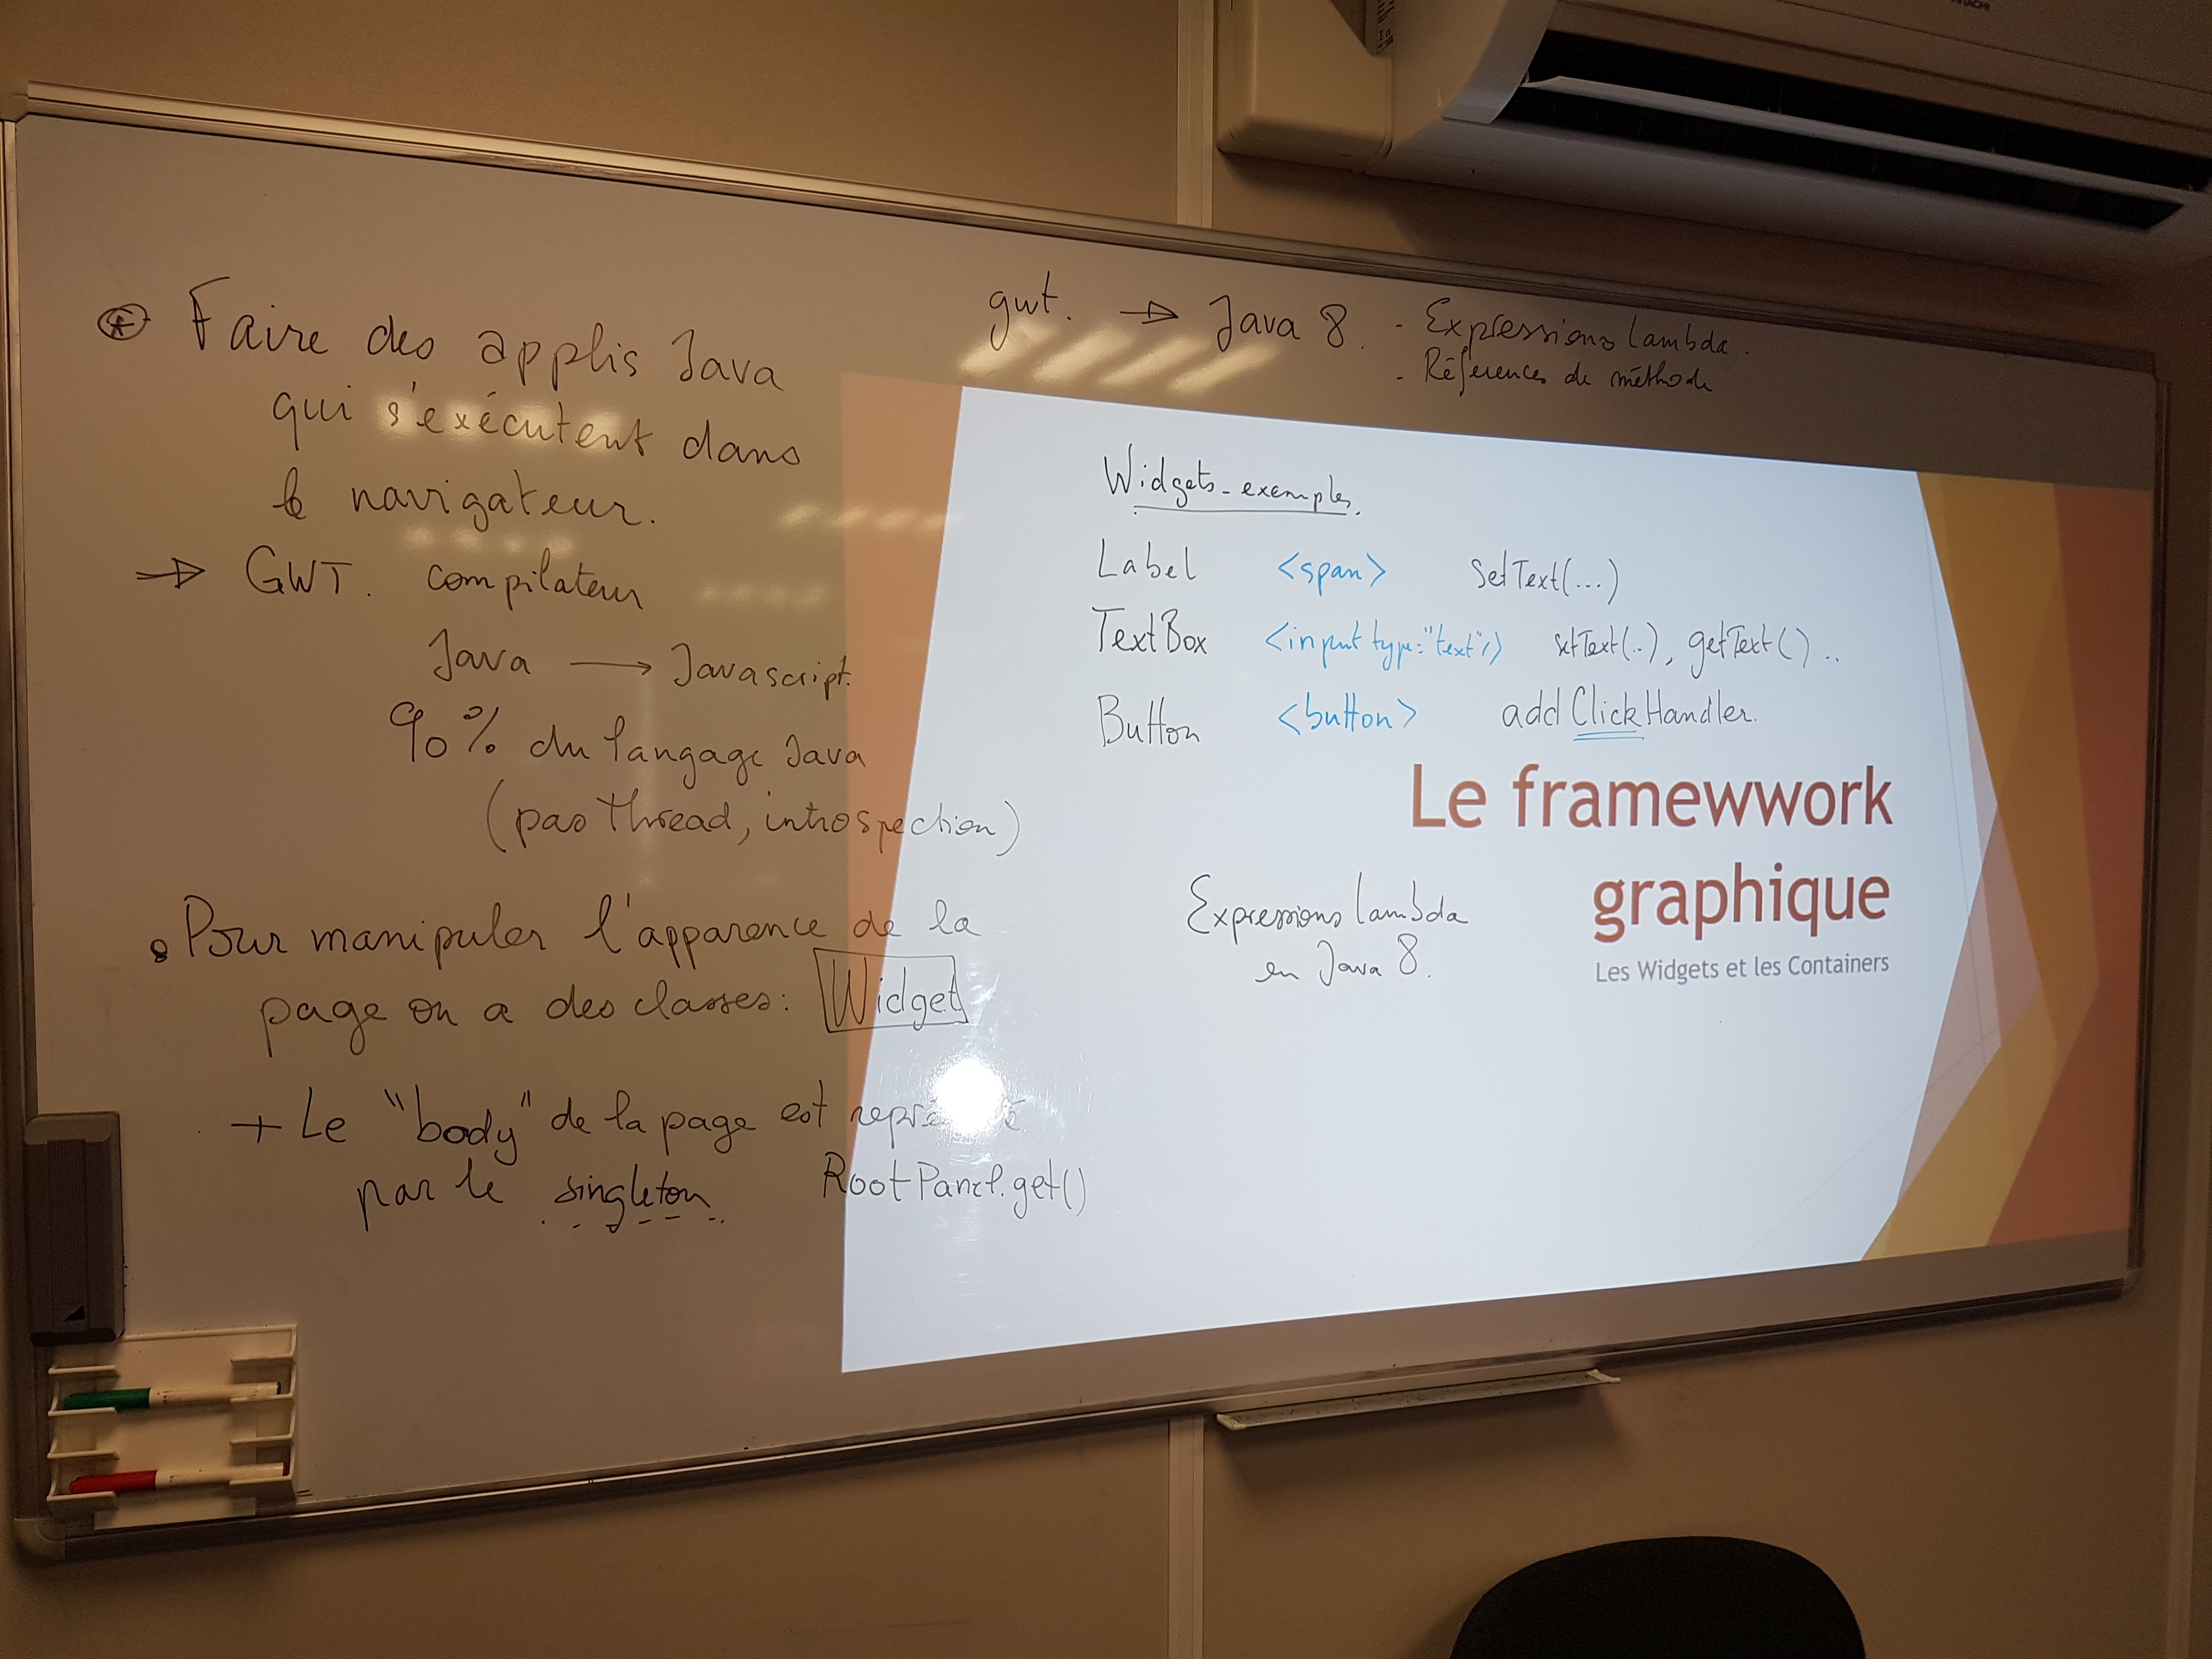 HITACHI
⊛ Faire des applis Java
qui s'exécutent dans
le navigateur.
⇒ GWT. compilateur
Java → Javascript.
90% du langage Java
(pas thread, introspection)
• Pour manipuler l'apparence de la
page on a des classes: Widget
+ Le "body" de la page est
par le singleton RootPanel.get()
gwt. → Java 8. - Expressions lambda.
- Références de méthode
Widgets - exemples.
Label <span> setText(...)
TextBox <input type="text"/> setText(..), getText() ..
Button <button> addClickHandler.
Le framewwork
graphique
Les Widgets et les Containers
Expressions lambda
en Java 8.